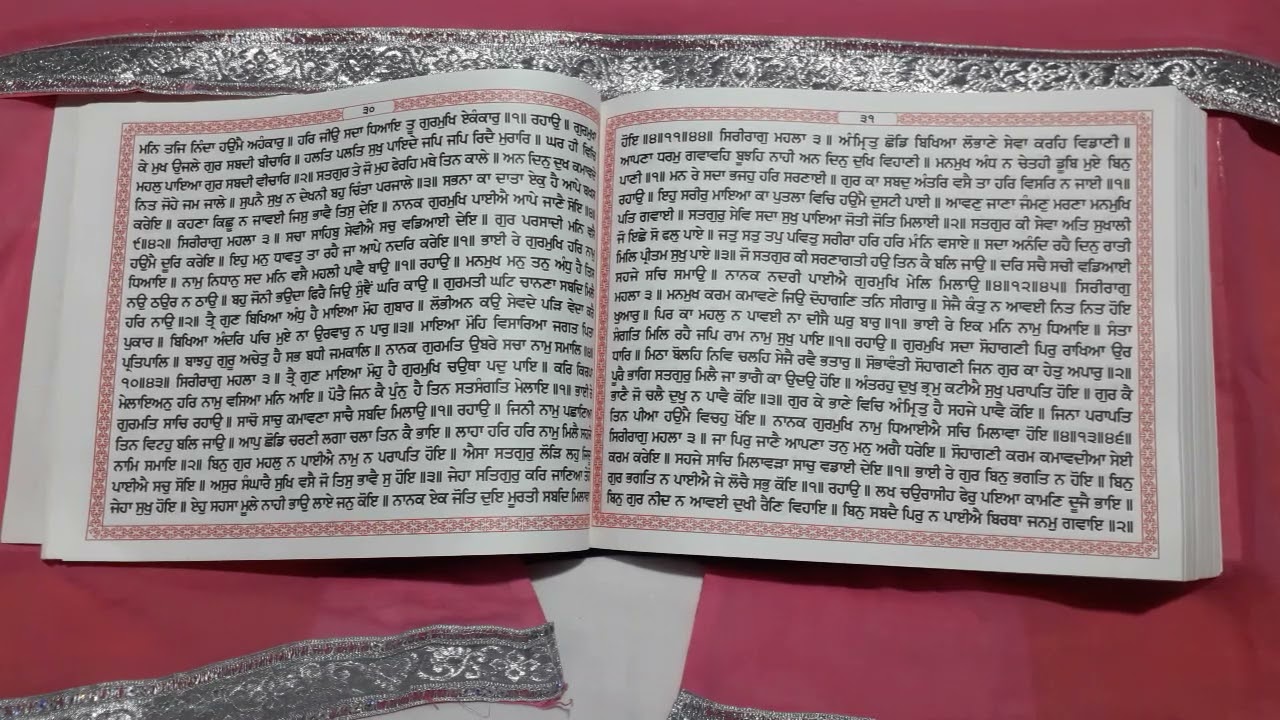 ੩੦
ਮਨਿ ਤਜਿ ਨਿੰਦਾ ਹਉਮੈ ਅਹੰਕਾਰੁ ॥ ਹਰਿ ਜੀਉ ਸਦਾ ਧਿਆਇ ਤੂ ਗੁਰਮੁਖਿ ਏਕੰਕਾਰੁ ॥੧॥ ਰਹਾਉ ॥ ਗੁਰਮੁਖਾ
ਕੇ ਮੁਖ ਉਜਲੇ ਗੁਰ ਸਬਦੀ ਬੀਚਾਰਿ ॥ ਹਲਤਿ ਪਲਤਿ ਸੁਖੁ ਪਾਇਦੇ ਜਪਿ ਜਪਿ ਰਿਦੈ ਮੁਰਾਰਿ ॥ ਘਰ ਹੀ ਵਿਚਿ
ਮਹਲੁ ਪਾਇਆ ਗੁਰ ਸਬਦੀ ਵੀਚਾਰਿ ॥੨॥ ਸਤਗੁਰ ਤੇ ਜੋ ਮੁਹ ਫੇਰਹਿ ਮਥੇ ਤਿਨ ਕਾਲੇ ॥ ਅਨ ਦਿਨੁ ਦੁਖ ਕਮਾਵਦੇ
ਨਿਤ ਜੋਹੇ ਜਮ ਜਾਲੇ ॥ ਸੁਪਨੈ ਸੁਖੁ ਨ ਦੇਖਨੀ ਬਹੁ ਚਿੰਤਾ ਪਰਜਾਲੇ ॥੩॥ ਸਭਨਾ ਕਾ ਦਾਤਾ ਏਕੁ ਹੈ ਆਪੇ ਬਖਸ
ਕਰੇਇ ॥ ਕਹਣਾ ਕਿਛੂ ਨ ਜਾਵਈ ਜਿਸੁ ਭਾਵੈ ਤਿਸੁ ਦੇਇ ॥ ਨਾਨਕ ਗੁਰਮੁਖਿ ਪਾਈਐ ਆਪੇ ਜਾਣੈ ਸੋਇ ॥੪॥
੯॥੪੨॥ ਸਿਰੀਰਾਗੁ ਮਹਲਾ ੩ ॥ ਸਚਾ ਸਾਹਿਬੁ ਸੇਵੀਐ ਸਚੁ ਵਡਿਆਈ ਦੇਇ ॥ ਗੁਰ ਪਰਸਾਦੀ ਮਨਿ ਵਸੈ
ਹਉਮੈ ਦੂਰਿ ਕਰੇਇ ॥ ਇਹੁ ਮਨੁ ਧਾਵਤੁ ਤਾ ਰਹੈ ਜਾ ਆਪੇ ਨਦਰਿ ਕਰੇਇ ॥੧॥ ਭਾਈ ਰੇ ਗੁਰਮੁਖਿ ਹਰਿ ਨਾਮੁ
ਧਿਆਇ ॥ ਨਾਮੁ ਨਿਧਾਨੁ ਸਦ ਮਨਿ ਵਸੈ ਮਹਲੀ ਪਾਵੈ ਥਾਉ ॥੧॥ ਰਹਾਉ ॥ ਮਨਮੁਖ ਮਨੁ ਤਨੁ ਅੰਧੁ ਹੈ ਤਿਸ
ਨਉ ਠਉਰ ਨ ਠਾਉ ॥ ਬਹੁ ਜੋਨੀ ਭਉਦਾ ਫਿਰੈ ਜਿਉ ਸੁੰਞੈਂ ਘਰਿ ਕਾਉ ॥ ਗੁਰਮਤੀ ਘਟਿ ਚਾਨਣਾ ਸਬਦਿ ਮਿਲੈ
ਹਰਿ ਨਾਉ ॥੨॥ ਤ੍ਰੈ ਗੁਣ ਬਿਖਿਆ ਅੰਧੁ ਹੈ ਮਾਇਆ ਮੋਹ ਗੁਬਾਰ ॥ ਲੋਭੀਅਨ ਕਉ ਸੇਵਦੇ ਪੜਿ ਵੇਦਾ ਕਰੈ
ਪੂਕਾਰ ॥ ਬਿਖਿਆ ਅੰਦਰਿ ਪਚਿ ਮੁਏ ਨਾ ਉਰਵਾਰੁ ਨ ਪਾਰੁ ॥੩॥ ਮਾਇਆ ਮੋਹਿ ਵਿਸਾਰਿਆ ਜਗਤ ਪਿਤਾ
ਪ੍ਰਤਿਪਾਲਿ ॥ ਬਾਝਹੁ ਗੁਰੂ ਅਚੇਤੁ ਹੈ ਸਭ ਬਧੀ ਜਮਕਾਲਿ ॥ ਨਾਨਕ ਗੁਰਮਤਿ ਉਬਰੇ ਸਚਾ ਨਾਮੁ ਸਮਾਲਿ ॥੪॥
੧੦॥੪੩॥ ਸਿਰੀਰਾਗੁ ਮਹਲਾ ੩ ॥ ਤ੍ਰੈ ਗੁਣ ਮਾਇਆ ਮੋਹੁ ਹੈ ਗੁਰਮੁਖਿ ਚਉਥਾ ਪਦੁ ਪਾਇ ॥ ਕਰਿ ਕਿਰਪਾ
ਮੇਲਾਇਅਨੁ ਹਰਿ ਨਾਮੁ ਵਸਿਆ ਮਨਿ ਆਇ ॥ ਪੋਤੈ ਜਿਨ ਕੈ ਪੁੰਨੁ ਹੈ ਤਿਨ ਸਤਸੰਗਤਿ ਮੇਲਾਇ ॥੧॥ ਭਾਈ ਰੇ
ਗੁਰਮਤਿ ਸਾਚਿ ਰਹਾਉ ॥ ਸਾਚੋ ਸਾਚੁ ਕਮਾਵਣਾ ਸਾਚੈ ਸਬਦਿ ਮਿਲਾਉ ॥੧॥ ਰਹਾਉ ॥ ਜਿਨੀ ਨਾਮੁ ਪਛਾਣਿਆ
ਤਿਨ ਵਿਟਹੁ ਬਲਿ ਜਾਉ ॥ ਆਪੁ ਛੋਡਿ ਚਰਣੀ ਲਗਾ ਚਲਾ ਤਿਨ ਕੈ ਭਾਇ ॥ ਲਾਹਾ ਹਰਿ ਹਰਿ ਨਾਮੁ ਮਿਲੈ ਸਹਜੇ
ਨਾਮਿ ਸਮਾਇ ॥੨॥ ਬਿਨੁ ਗੁਰ ਮਹਲੁ ਨ ਪਾਈਐ ਨਾਮੁ ਨ ਪਰਾਪਤਿ ਹੋਇ ॥ ਐਸਾ ਸਤਗੁਰੁ ਲੋੜਿ ਲਹੁ ਜਿਦੂ
ਪਾਈਐ ਸਚੁ ਸੋਇ ॥ ਅਸੁਰ ਸੰਘਾਰੈ ਸੁਖਿ ਵਸੈ ਜੋ ਤਿਸੁ ਭਾਵੈ ਸੁ ਹੋਇ ॥੩॥ ਜੇਹਾ ਸਤਿਗੁਰੁ ਕਰਿ ਜਾਣਿਆ ਤੇਹੋ
ਜੇਹਾ ਸੁਖੁ ਹੋਇ ॥ ਏਹੁ ਸਹਸਾ ਮੂਲੇ ਨਾਹੀ ਭਾਉ ਲਾਏ ਜਨੁ ਕੋਇ ॥ ਨਾਨਕ ਏਕ ਜੋਤਿ ਦੁਇ ਮੂਰਤੀ ਸਬਦਿ ਮਿਲਾਵਾ
੩੧
ਹੋਇ ॥੪॥੧੧॥੪੪॥ ਸਿਰੀਰਾਗੁ ਮਹਲਾ ੩ ॥ ਅੰਮ੍ਰਿਤੁ ਛੋਡਿ ਬਿਖਿਆ ਲੋਭਾਣੇ ਸੇਵਾ ਕਰਹਿ ਵਿਡਾਣੀ ॥
ਆਪਣਾ ਧਰਮੁ ਗਵਾਵਹਿ ਬੂਝਹਿ ਨਾਹੀ ਅਨ ਦਿਨੁ ਦੁਖਿ ਵਿਹਾਣੀ ॥ ਮਨਮੁਖ ਅੰਧ ਨ ਚੇਤਹੀ ਡੂਬਿ ਮੁਏ ਬਿਨੁ
ਪਾਣੀ ॥੧॥ ਮਨ ਰੇ ਸਦਾ ਭਜਹੁ ਹਰਿ ਸਰਣਾਈ ॥ ਗੁਰ ਕਾ ਸਬਦੁ ਅੰਤਰਿ ਵਸੈ ਤਾ ਹਰਿ ਵਿਸਰਿ ਨ ਜਾਈ ॥੧॥
ਰਹਾਉ ॥ ਇਹੁ ਸਰੀਰੁ ਮਾਇਆ ਕਾ ਪੁਤਲਾ ਵਿਚਿ ਹਉਮੈ ਦੁਸਟੀ ਪਾਈ ॥ ਆਵਣੁ ਜਾਣਾ ਜੰਮਣੁ ਮਰਣਾ ਮਨਮੁਖਿ
ਪਤਿ ਗਵਾਈ ॥ ਸਤਗੁਰੁ ਸੇਵਿ ਸਦਾ ਸੁਖੁ ਪਾਇਆ ਜੋਤੀ ਜੋਤਿ ਮਿਲਾਈ ॥੨॥ ਸਤਗੁਰ ਕੀ ਸੇਵਾ ਅਤਿ ਸੁਖਾਲੀ
ਜੋ ਇਛੇ ਸੋ ਫਲੁ ਪਾਏ ॥ ਜਤੁ ਸਤੁ ਤਪੁ ਪਵਿਤੁ ਸਰੀਰਾ ਹਰਿ ਹਰਿ ਮੰਨਿ ਵਸਾਏ ॥ ਸਦਾ ਅਨੰਦਿ ਰਹੈ ਦਿਨੁ ਰਾਤੀ
ਮਿਲਿ ਪ੍ਰੀਤਮ ਸੁਖੁ ਪਾਏ ॥੩॥ ਜੋ ਸਤਗੁਰ ਕੀ ਸਰਣਾਗਤੀ ਹਉ ਤਿਨ ਕੈ ਬਲਿ ਜਾਉ ॥ ਦਰਿ ਸਚੈ ਸਚੀ ਵਡਿਆਈ
ਸਹਜੇ ਸਚਿ ਸਮਾਉ ॥ ਨਾਨਕ ਨਦਰੀ ਪਾਈਐ ਗੁਰਮੁਖਿ ਮੇਲਿ ਮਿਲਾਉ ॥੪॥੧੨॥੪੫॥ ਸਿਰੀਰਾਗੁ
ਮਹਲਾ ੩ ॥ ਮਨਮੁਖ ਕਰਮ ਕਮਾਵਣੇ ਜਿਉ ਦੋਹਾਗਣਿ ਤਨਿ ਸੀਗਾਰੁ ॥ ਸੇਜੈ ਕੰਤੁ ਨ ਆਵਈ ਨਿਤ ਨਿਤ ਹੋਇ
ਖੁਆਰੁ ॥ ਪਿਰ ਕਾ ਮਹਲੁ ਨ ਪਾਵਈ ਨਾ ਦੀਸੈ ਘਰੁ ਬਾਰੁ ॥੧॥ ਭਾਈ ਰੇ ਇਕ ਮਨਿ ਨਾਮੁ ਧਿਆਇ ॥ ਸੰਤਾ
ਸੰਗਤਿ ਮਿਲਿ ਰਹੈ ਜਪਿ ਰਾਮ ਨਾਮੁ ਸੁਖੁ ਪਾਇ ॥੧॥ ਰਹਾਉ ॥ ਗੁਰਮੁਖਿ ਸਦਾ ਸੋਹਾਗਣੀ ਪਿਰੁ ਰਾਖਿਆ ਉਰ
ਧਾਰਿ ॥ ਮਿਠਾ ਬੋਲਹਿ ਨਿਵਿ ਚਲਹਿ ਸੇਜੈ ਰਵੈ ਭਤਾਰੁ ॥ ਸੋਭਾਵੰਤੀ ਸੋਹਾਗਣੀ ਜਿਨ ਗੁਰ ਕਾ ਹੇਤੁ ਅਪਾਰੁ ॥੨॥
ਪੂਰੈ ਭਾਗਿ ਸਤਗੁਰੁ ਮਿਲੈ ਜਾ ਭਾਗੈ ਕਾ ਉਦਉ ਹੋਇ ॥ ਅੰਤਰਹੁ ਦੁਖੁ ਭ੍ਰਮੁ ਕਟੀਐ ਸੁਖੁ ਪਰਾਪਤਿ ਹੋਇ ॥ ਗੁਰ ਕੈ
ਭਾਣੈ ਜੋ ਚਲੈ ਦੁਖੁ ਨ ਪਾਵੈ ਕੋਇ ॥੩॥ ਗੁਰ ਕੇ ਭਾਣੇ ਵਿਚਿ ਅੰਮ੍ਰਿਤੁ ਹੈ ਸਹਜੇ ਪਾਵੈ ਕੋਇ ॥ ਜਿਨਾ ਪਰਾਪਤਿ
ਤਿਨ ਪੀਆ ਹਉਮੈ ਵਿਚਹੁ ਖੋਇ ॥ ਨਾਨਕ ਗੁਰਮੁਖਿ ਨਾਮੁ ਧਿਆਈਐ ਸਚਿ ਮਿਲਾਵਾ ਹੋਇ ॥੪॥੧੩॥੪੬॥
ਸਿਰੀਰਾਗੁ ਮਹਲਾ ੩ ॥ ਜਾ ਪਿਰੁ ਜਾਣੈ ਆਪਣਾ ਤਨੁ ਮਨੁ ਅਗੈ ਧਰੇਇ ॥ ਸੋਹਾਗਣੀ ਕਰਮ ਕਮਾਵਦੀਆ ਸੇਈ
ਕਰਮ ਕਰੇਇ ॥ ਸਹਜੇ ਸਾਚਿ ਮਿਲਾਵੜਾ ਸਾਚੁ ਵਡਾਈ ਦੇਇ ॥੧॥ ਭਾਈ ਰੇ ਗੁਰ ਬਿਨੁ ਭਗਤਿ ਨ ਹੋਇ ॥ ਬਿਨੁ
ਗੁਰ ਭਗਤਿ ਨ ਪਾਈਐ ਜੇ ਲੋਚੈ ਸਭੁ ਕੋਇ ॥੧॥ ਰਹਾਉ ॥ ਲਖ ਚਉਰਾਸੀਹ ਫੇਰੁ ਪਇਆ ਕਾਮਣਿ ਦੂਜੈ ਭਾਇ ॥
ਬਿਨੁ ਗੁਰ ਨੀਦ ਨ ਆਵਈ ਦੁਖੀ ਰੈਣਿ ਵਿਹਾਇ ॥ ਬਿਨੁ ਸਬਦੈ ਪਿਰੁ ਨ ਪਾਈਐ ਬਿਰਥਾ ਜਨਮੁ ਗਵਾਇ ॥੨॥